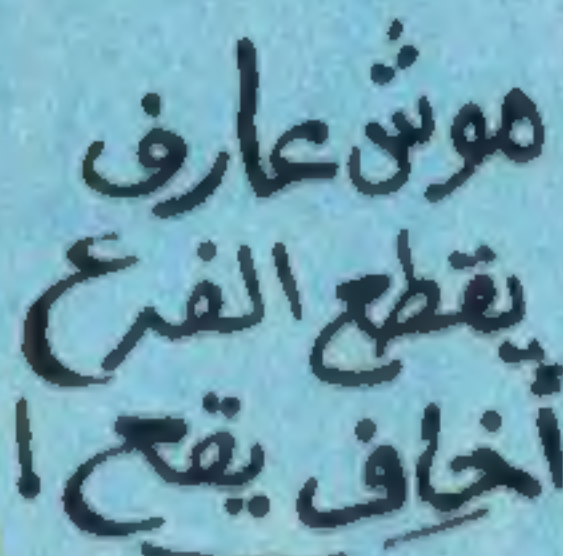 موش عارف
يقطع الفرع
أخاف يقع !